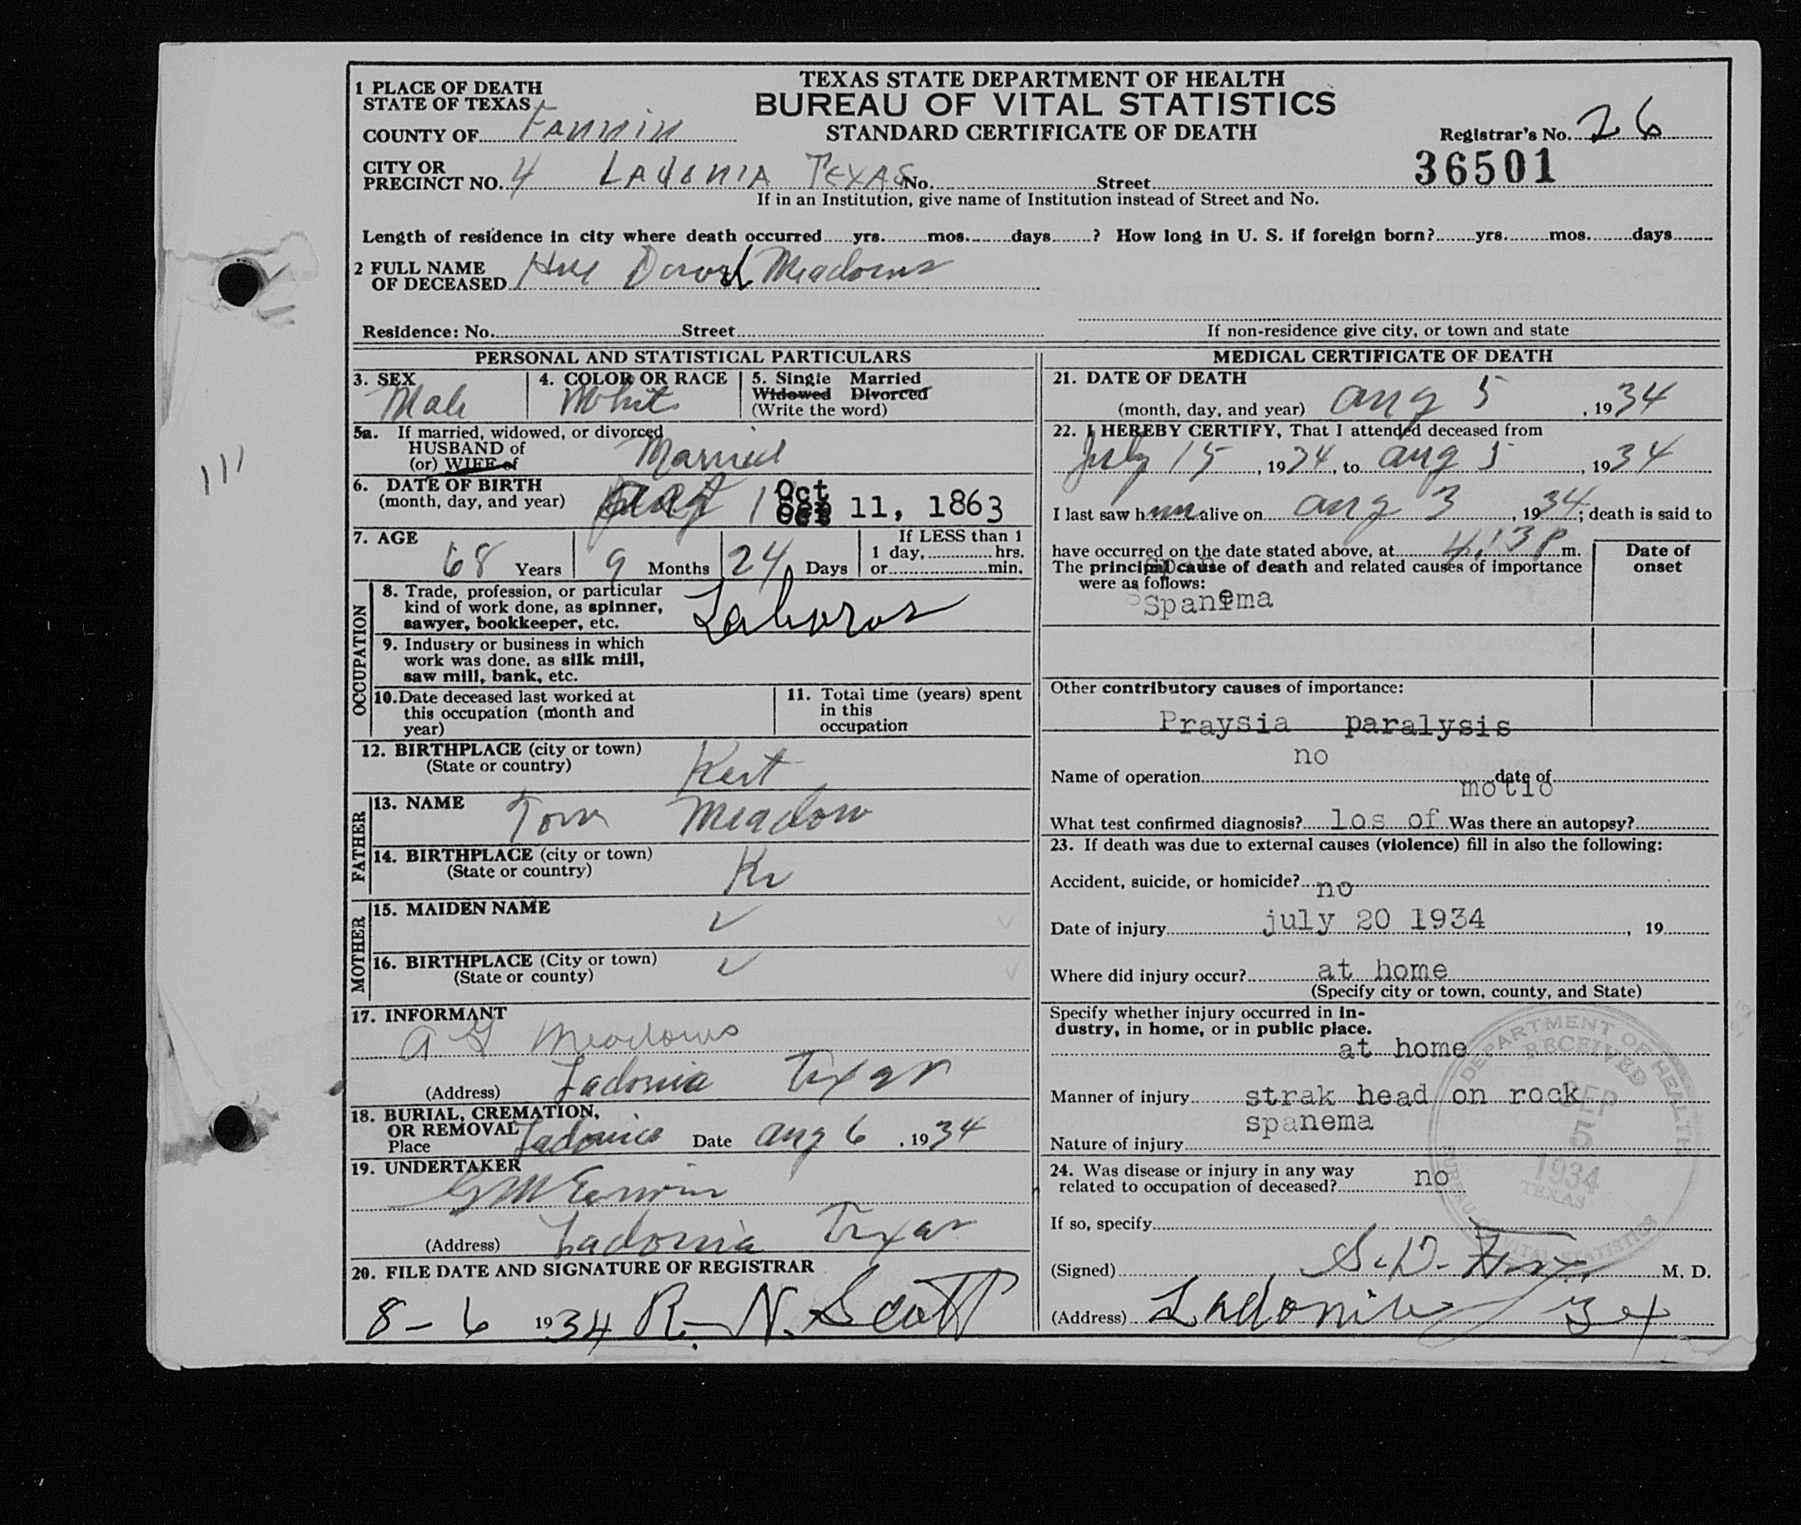 TEXAS STATE DEPARTMENT OF HEALTH
BUREAU OF VITAL STATISTICS
STANDARD CERTIFICATE OF DEATH
1 PLACE OF DEATH
STATE OF TEXAS
COUNTY OF Fannin
Registrar's No. 26
36501
CITY OR
PRECINCT NO. 4 LADONIA TEXAS No. Street
If in an Institution, give name of Institution instead of Street and No.
Length of residence in city where death occurred yrs. mos. days ? How long in U. S. if foreign born? yrs. mos. days
2 FULL NAME
OF DECEASED Meadows
Residence: No. Street If non-residence give city, or town and state
PERSONAL AND STATISTICAL PARTICULARS
3. SEX
Male
4. COLOR OR RACE
Whit
5. Single Married
Widowed Divorced
(Write the word)
5a. If married, widowed, or divorced
HUSBAND of
(or) WIFE of
Married
6. DATE OF BIRTH
(month, day, and year) Oct 11, 1863
7. AGE
68 Years 9 Months 24 Days
If LESS than 1
1 day, hrs.
or min.
OCCUPATION
8. Trade, profession, or particular
kind of work done, as spinner,
sawyer, bookkeeper, etc.
Laborer
9. Industry or business in which
work was done, as silk mill,
saw mill, bank, etc.
10. Date deceased last worked at
this occupation (month and
year)
11. Total time (years) spent
in this
occupation
12. BIRTHPLACE (city or town)
(State or country)
Kent
FATHER
13. NAME Tom Meadow
14. BIRTHPLACE (city or town)
(State or country)
MOTHER
15. MAIDEN NAME ✓
16. BIRTHPLACE (City or town)
(State or county) ✓
17. INFORMANT
A G Meadows
(Address) Ladonia Texas
18. BURIAL, CREMATION,
OR REMOVAL
Place Ladonia Date Aug 6, 1934
19. UNDERTAKER
(Address) Ladonia Texas
20. FILE DATE AND SIGNATURE OF REGISTRAR
8-6 1934 R. N. Scott
MEDICAL CERTIFICATE OF DEATH
21. DATE OF DEATH
(month, day, and year) Aug 5, 1934
22. I HEREBY CERTIFY, That I attended deceased from
July 15, 1934, to Aug 5, 1934
I last saw him alive on Aug 3, 1934; death is said to
have occurred on the date stated above, at 4:3 P m.
The principal cause of death and related causes of importance
were as follows:
Date of
onset
Spanema
Other contributory causes of importance:
Praysia paralysis
no
Name of operation date of
motio
What test confirmed diagnosis? los of Was there an autopsy?
23. If death was due to external causes (violence) fill in also the following:
Accident, suicide, or homicide? no
Date of injury july 20 1934, 19
Where did injury occur? at home
(Specify city or town, county, and State)
Specify whether injury occurred in in-
dustry, in home, or in public place.
at home
Manner of injury strak head on rock
spanema
Nature of injury
24. Was disease or injury in any way
related to occupation of deceased? no
If so, specify
(Signed) S. D. M. D.
(Address) Ladonia Tex
DEPARTMENT OF HEALTH
RECEIVED
SEP
5
1934
TEXAS
BUREAU OF VITAL STATISTICS